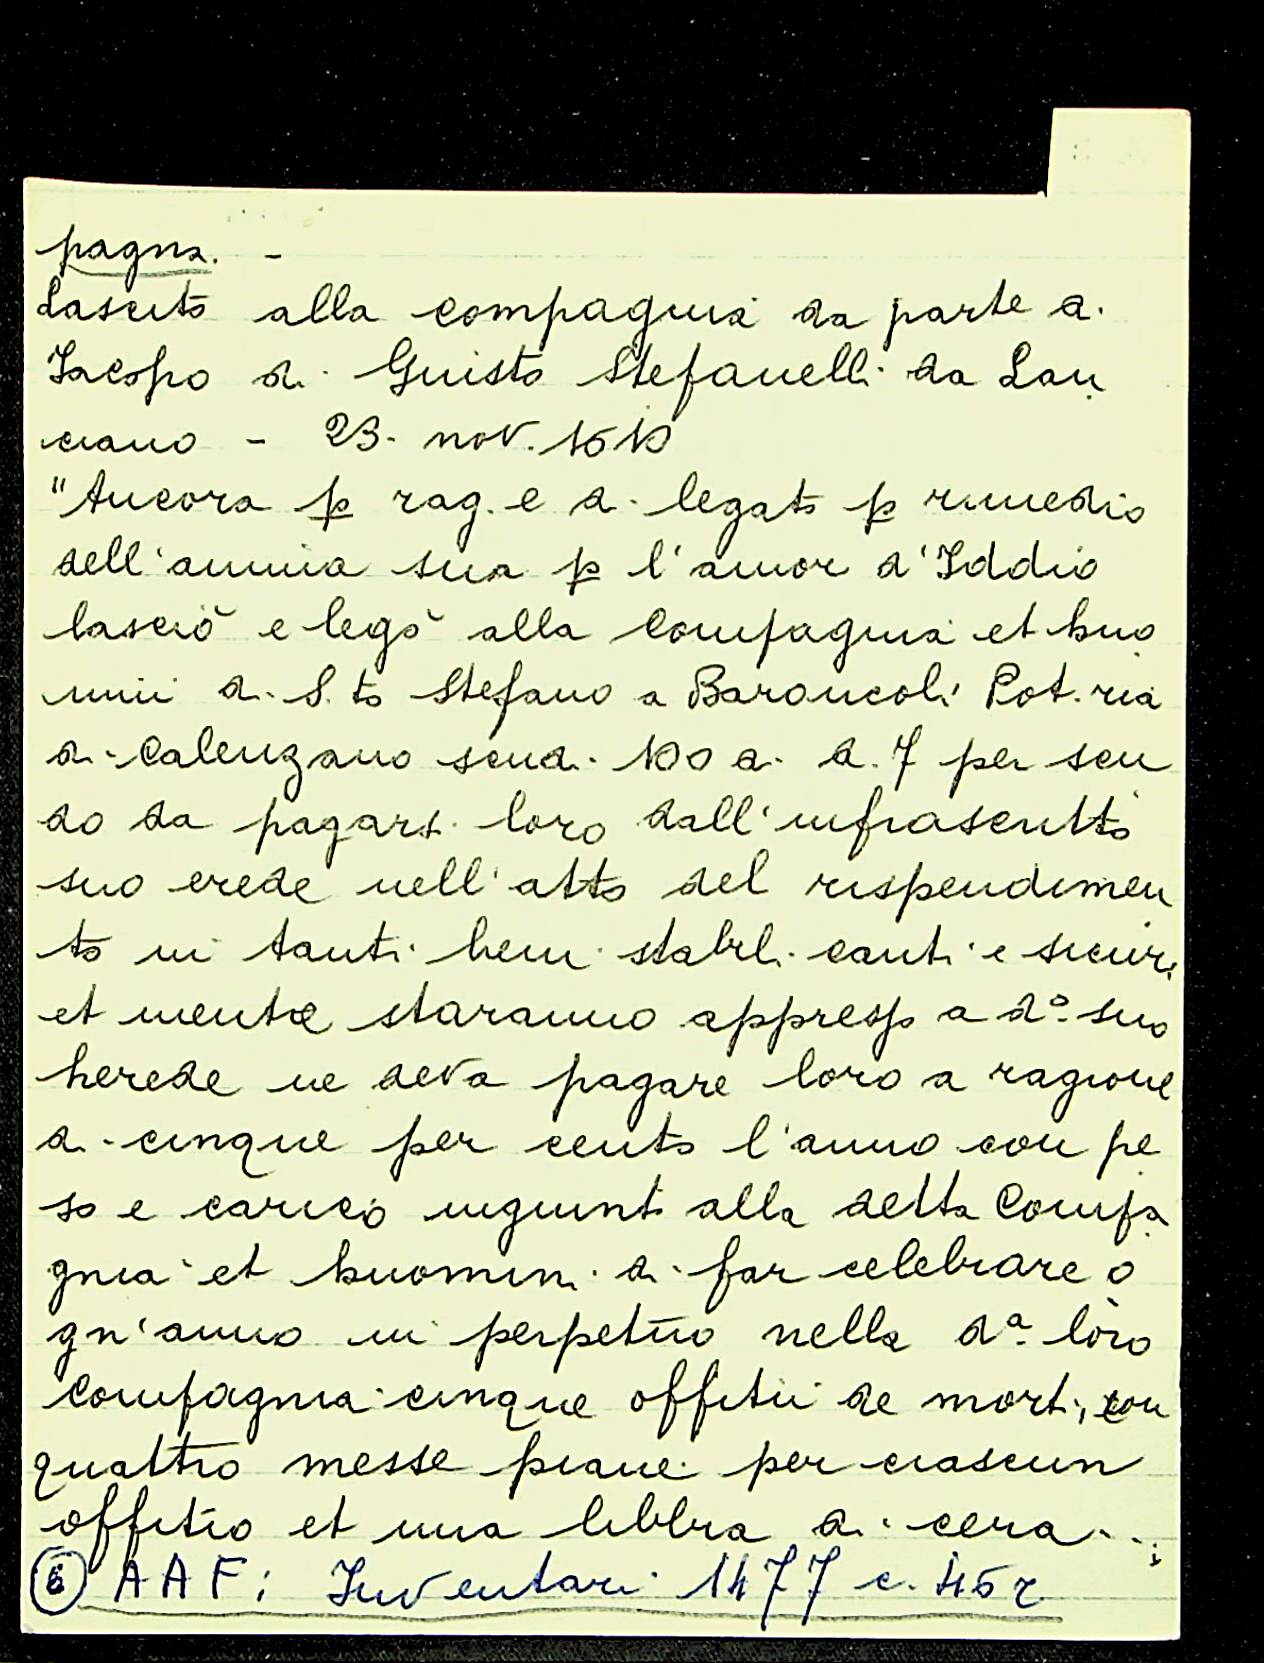 pagna. -
Lascito alla compagnia da parte di
Jacopo di Giusto Stefanelli da Lan
ciano - 23. nov. 1610
"Ancora p rag.e di legato p rimedio
dell'anima sua p l'amor d'Iddio
lasciò e legò alla Compagnia et huo
mini di S.to Stefano a Baroncoli Pot.ria
di Calenzano scudi 100 di d. 7 per scu
do da pagarsi loro dall'infrascritto
suo erede nell'atto del rispendimen
to in tanti beni stabili canti e sicuri
et mentre staranno appresso a d.o suo
herede ne deva pagare loro a ragione
di cinque per cento l'anno con pe
so e carico ingiunti alla detta Compa
gnia et huomini di far celebrare o
gn'anno in perpetuo nella d.a loro
Compagnia cinque offitii de morti, con
quattro messe piane per ciascun
offitio et una libbra di cera..;
6 AAF: Inventari 1477 c. 45r